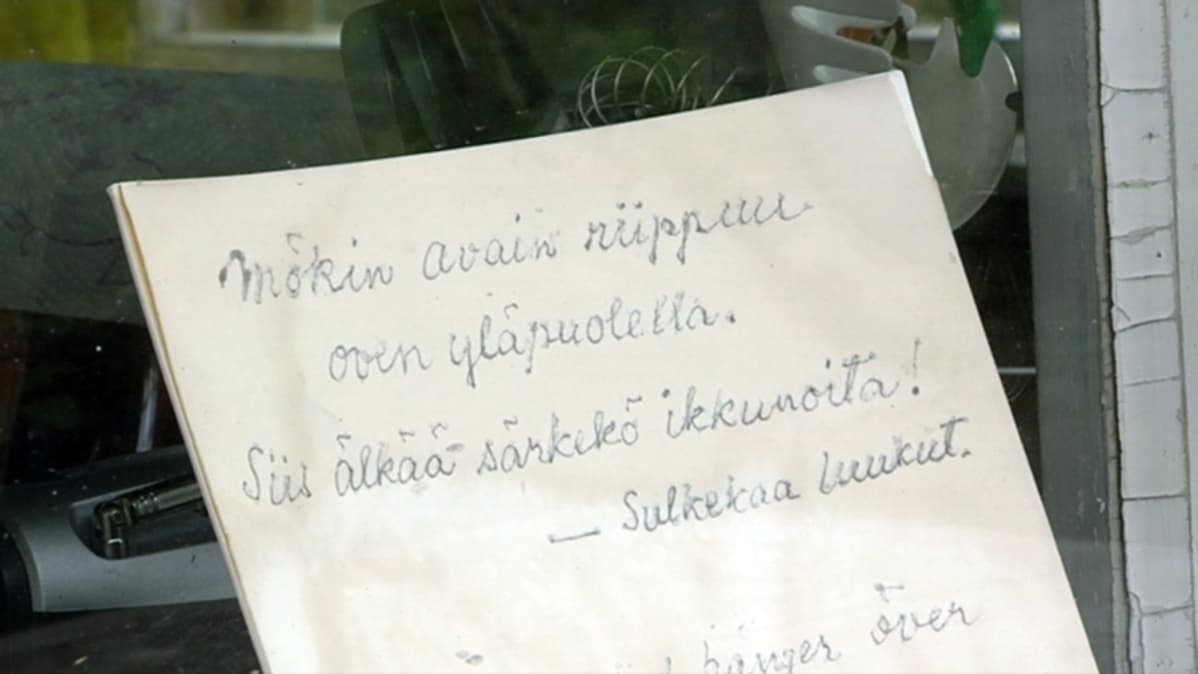 Mökin avain riippuu
oven yläpuolella.
Siis älkää särkekö ikkunoita!
— Sulkekaa luukut.
hänger över